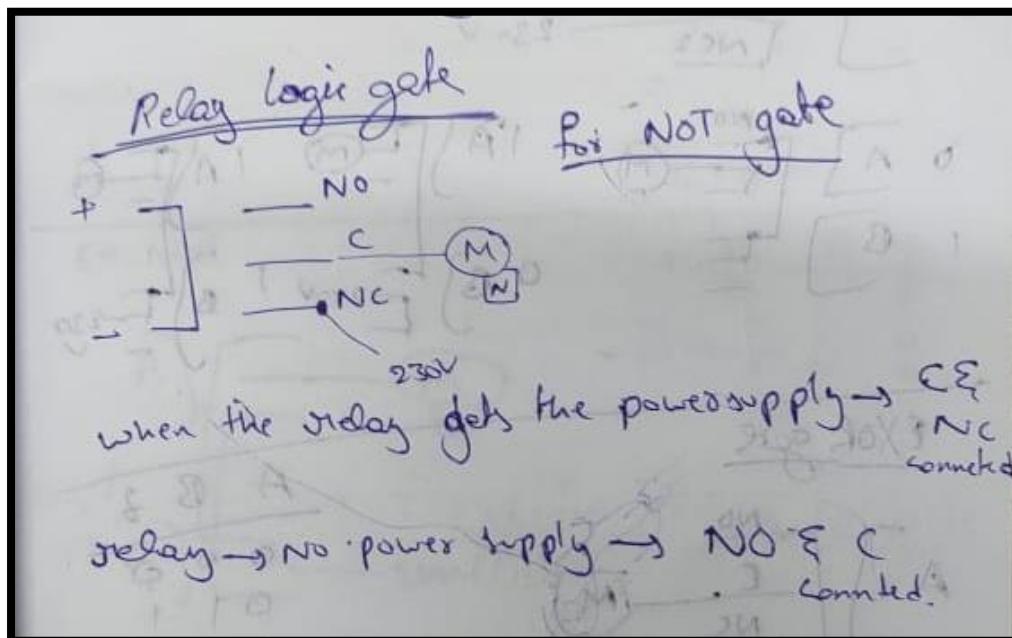 Relay Logic gate
for NOT gate
+
NO
C
M
N
NC
-
230V
when the relay gets the powersupply → C &
NC
conneted
relay → No power supply → NO & C
connted.